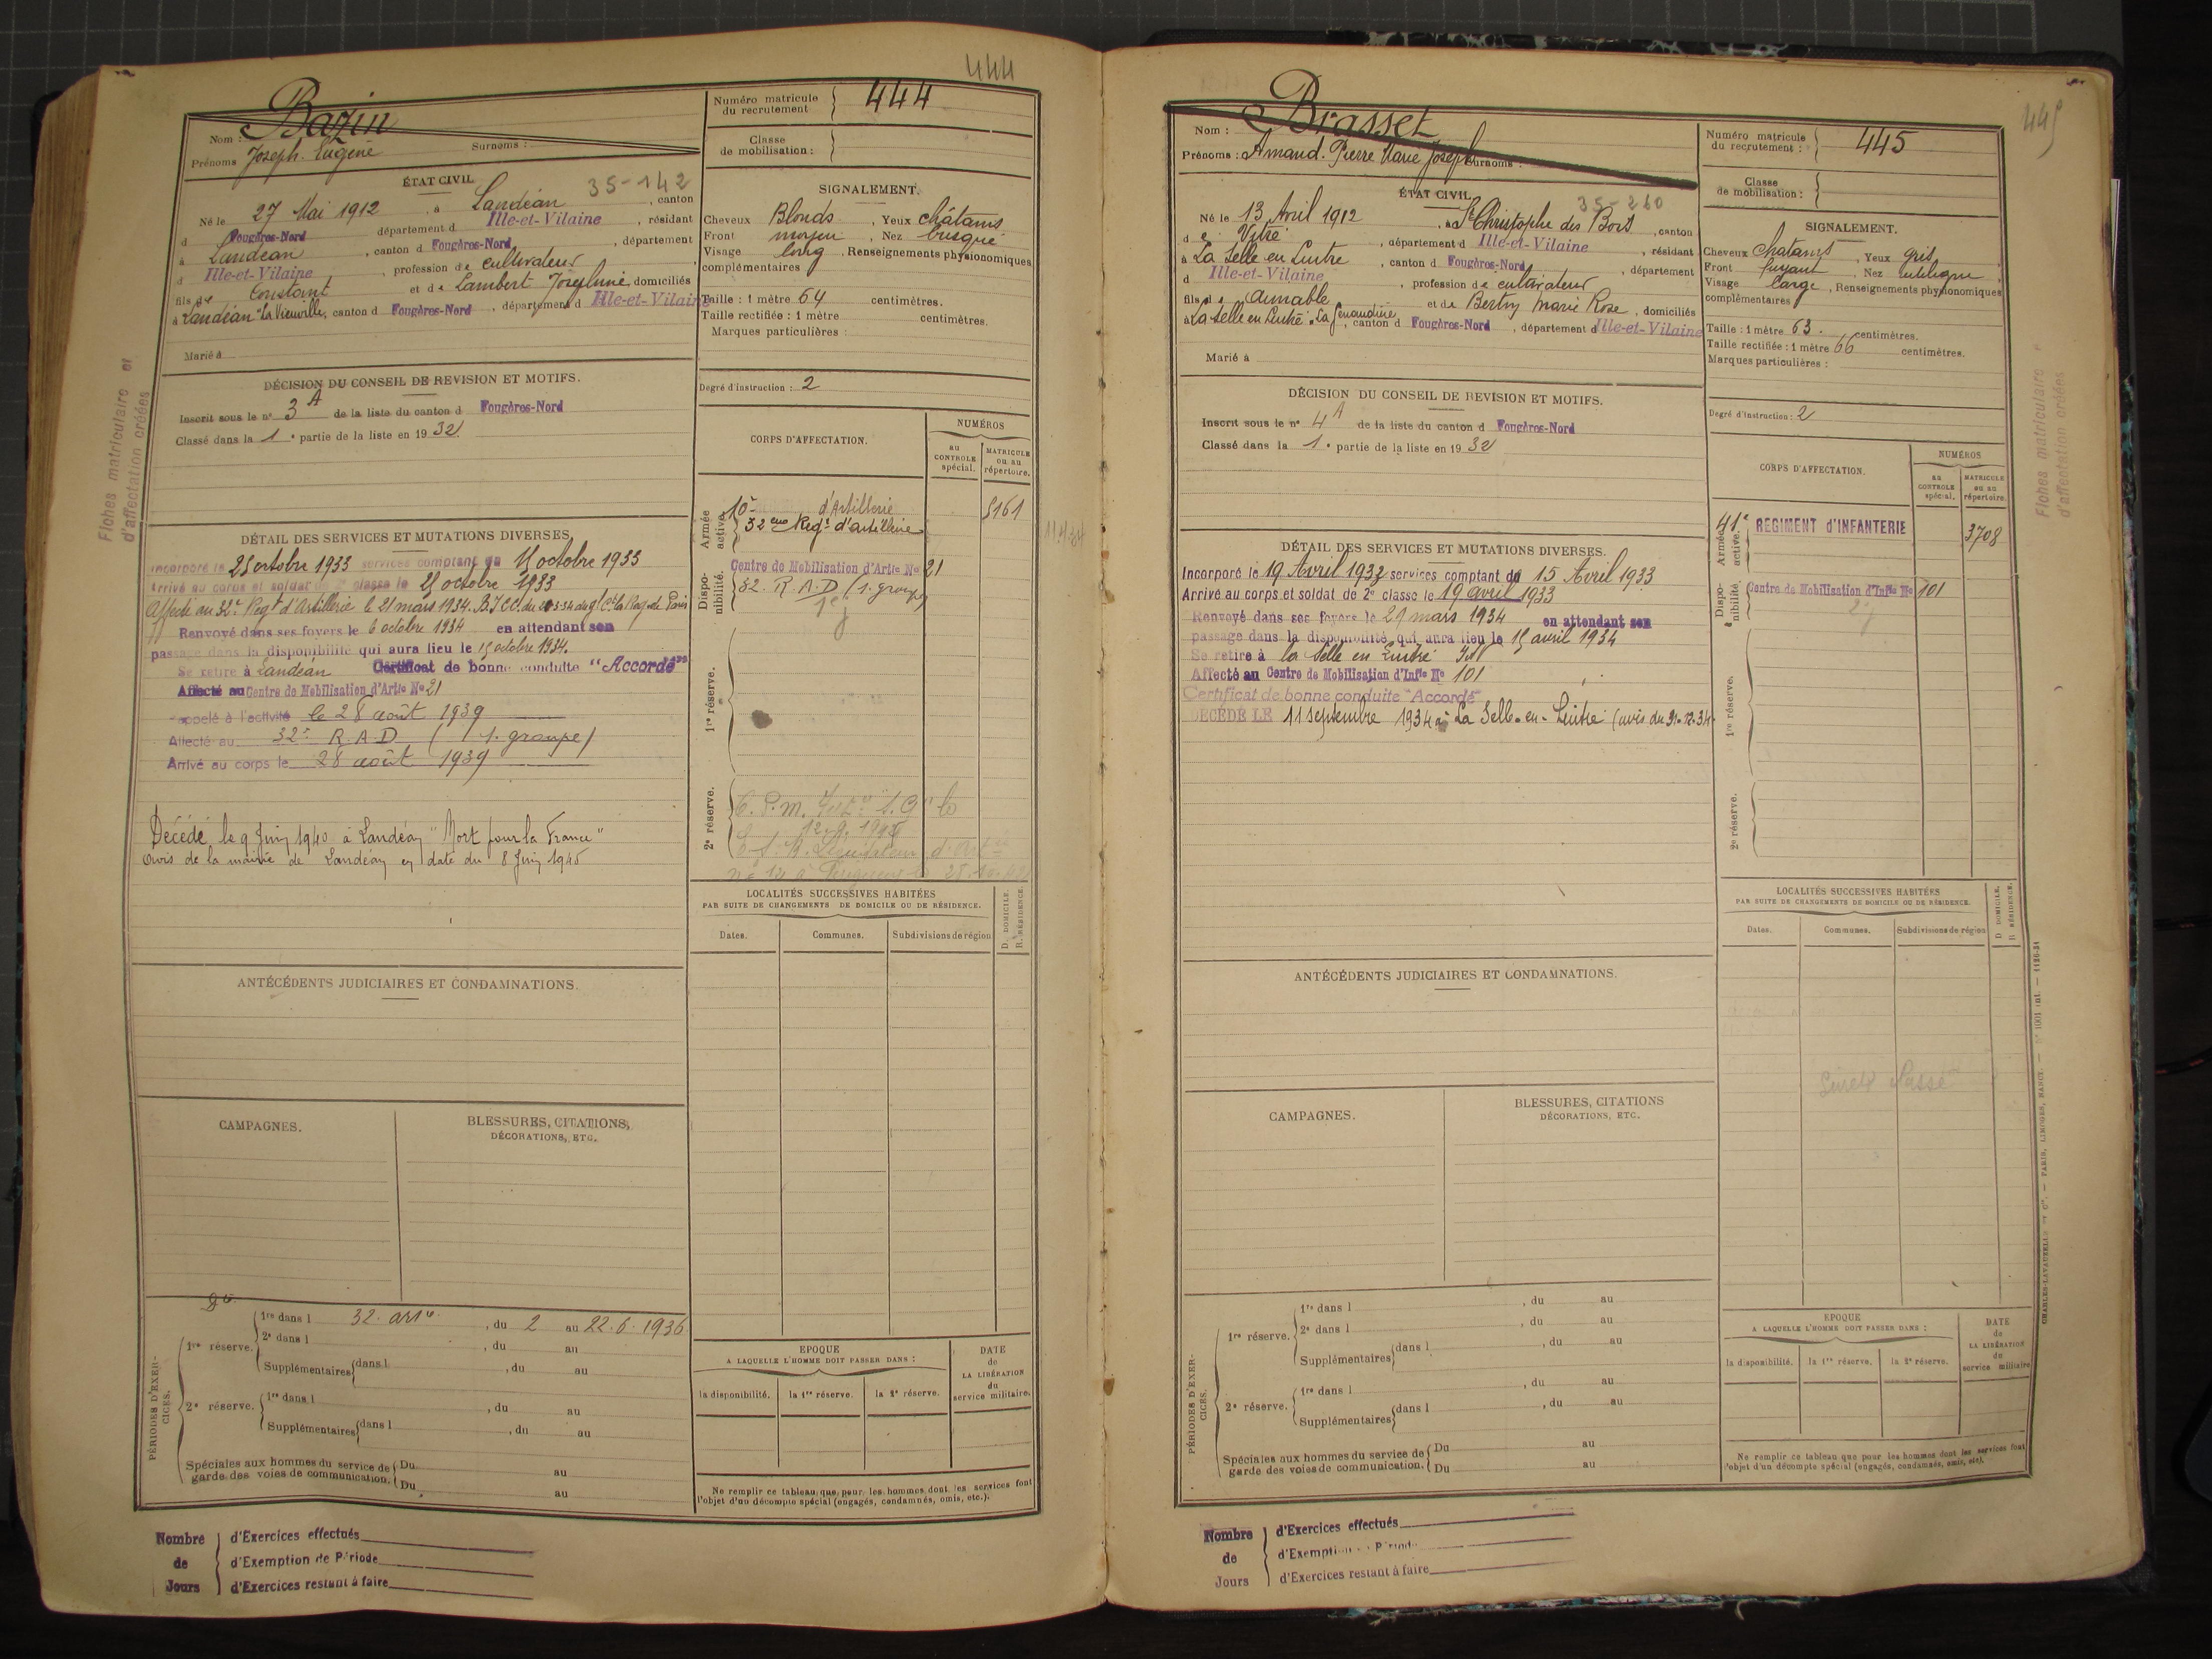 444
Nom : Bazin
Prénoms Joseph. Eugène Surnoms :
Numéro matricule du recrutement 444
Classe de mobilisation :
ÉTAT CIVIL 35-142
Né le 27 Mai 1912, à Landéan, canton
d Fougères-Nord département d Ille-et-Vilaine, résidant
à Landéan, canton d Fougères-Nord, département
d Ille-et-Vilaine, profession de cultivateur
fils de Constant et de Lambert Joséphine domiciliés
à Landéan "La Vieuville, canton d Fougères-Nord, département d Ille-et-Vilaine
Marié à
SIGNALEMENT.
Cheveux Blonds, Yeux châtains
Front moyen, Nez busqué
Visage long, Renseignements physionomiques
complémentaires
Taille : 1 mètre 64 centimètres.
Taille rectifiée : 1 mètre centimètres.
Marques particulières :
Degré d'instruction : 2
DÉCISION DU CONSEIL DE REVISION ET MOTIFS.
Inscrit sous le n° 3 A de la liste du canton d Fougères-Nord
Classé dans la 1e partie de la liste en 1932.
Fiches matriculaire et
d'affectation créées
CORPS D'AFFECTATION.
NUMÉROS
au CONTROLE spécial.
MATRICULE ou au répertoire.
Armée active.
10e d'Artillerie 5161
32eme Regt d'artillerie
11.4.34
Disponibilité.
Centre de Mobilisation d'Artie No 21
32. R.A.D (1. groupe)
1re réserve.
2e réserve.
DÉTAIL DES SERVICES ET MUTATIONS DIVERSES.
Incorporé le 25 octobre 1933 services comptant du 15 octobre 1933
Arrivé au corps et soldat de 2e classe le 25 octobre 1933
Affecté au 32e Regt d'Artillerie le 21 mars 1934.
Renvoyé dans ses foyers le 6 octobre 1934 en attendant son
passage dans la disponibilité qui aura lieu le 15 octobre 1934.
Se retire à Landéan Certificat de bonne conduite "Accordé"
Affecté au Centre de Mobilisation d'Artie No 21
rappelé à l'activité le 28 août 1939
Affecté au 32e R.A.D ( 1. groupe)
Arrivé au corps le 28 août 1939
Décédé le 9 Juin 1940 à Landéan "Mort pour la France"
avis de la mairie de Landéan en date du 8 Juin 1945
LOCALITÉS SUCCESSIVES HABITÉES
PAR SUITE DE CHANGEMENTS DE DOMICILE OU DE RÉSIDENCE.
Dates. Communes. Subdivisions de région
D. DOMICILE.
R. RÉSIDENCE.
ANTÉCÉDENTS JUDICIAIRES ET CONDAMNATIONS.
CAMPAGNES.
BLESSURES, CITATIONS,
DÉCORATIONS, ETC.
PÉRIODES D'EXERCICES.
1re réserve. 1re dans l 32. artie, du 2 au 22.6.1936
2e dans l, du au
Supplémentaires dans l, du au
2e réserve. 1re dans l, du au
Supplémentaires dans l, du au
Spéciales aux hommes du service de garde des voies de communication.
Du au
Du au
EPOQUE
A LAQUELLE L'HOMME DOIT PASSER DANS :
la disponibilité. la 1re réserve. la 2e réserve.
DATE de LA LIBÉRATION du service militaire.
Ne remplir ce tableau que pour les hommes dont les services font
l'objet d'un décompte spécial (engagés, condamnés, omis, etc.).
Nombre de Jours
d'Exercices effectués
d'Exemption de Période
d'Exercices restant à faire
445
Nom : Brasset
Prénoms : Amand. Pierre Marie Joseph Surnoms :
Numéro matricule du recrutement : 445
Classe de mobilisation :
ÉTAT CIVIL 35-260
Né le 13 Avril 1912, à St Christophe des Bois, canton
de Vitré, département d Ille-et-Vilaine, résidant
à La Selle en Luitré, canton d Fougères-Nord, département
d Ille-et-Vilaine, profession de cultivateur
fils de Aimable et de Bertin Marie Rose, domiciliés
à La Selle en Luitré, canton d Fougères-Nord, département d Ille-et-Vilaine
Marié à
SIGNALEMENT.
Cheveux Chatains, Yeux gris
Front fuyant, Nez
Visage large, Renseignements physionomiques
complémentaires
Taille : 1 mètre 63. centimètres.
Taille rectifiée : 1 mètre 66 centimètres.
Marques particulières :
Degré d'instruction : 2
DÉCISION DU CONSEIL DE REVISION ET MOTIFS.
Inscrit sous le n° 4 A de la liste du canton d Fougères-Nord
Classé dans la 1e partie de la liste en 1932
Fiches matriculaire
d'affectation créées
CORPS D'AFFECTATION.
NUMÉROS
au CONTROLE spécial.
MATRICULE ou au répertoire.
Armée active.
41e REGIMENT d'INFANTERIE 3708
Disponibilité.
Centre de Mobilisation d'Infie No 101
1re réserve.
2e réserve.
DÉTAIL DES SERVICES ET MUTATIONS DIVERSES.
Incorporé le 19 Avril 1933 services comptant du 15 Avril 1933
Arrivé au corps et soldat de 2e classe le 19 avril 1933
Renvoyé dans ses foyers le 29 mars 1934 en attendant son
passage dans la disponibilité qui aura lieu le 15 avril 1934
Se retire à la Selle en Luitré
Affecté au Centre de Mobilisation d'Infie No 101
Certificat de bonne conduite "Accordé"
DÉCÉDÉ LE 11 septembre 1934 à La Selle-en-Luitré (avis du 31-12-34)
LOCALITÉS SUCCESSIVES HABITÉES
PAR SUITE DE CHANGEMENTS DE DOMICILE OU DE RÉSIDENCE.
Dates. Communes. Subdivisions de région
D. DOMICILE.
R. RÉSIDENCE.
ANTÉCÉDENTS JUDICIAIRES ET CONDAMNATIONS.
CAMPAGNES.
BLESSURES, CITATIONS
DÉCORATIONS, ETC.
PÉRIODES D'EXERCICES.
1re réserve. 1re dans l, du au
2e dans l, du au
Supplémentaires dans l, du au
2e réserve. 1re dans l, du au
Supplémentaires dans l, du au
Spéciales aux hommes du service de garde des voies de communication.
Du au
Du au
EPOQUE
A LAQUELLE L'HOMME DOIT PASSER DANS :
la disponibilité. la 1re réserve. la 2e réserve.
DATE de LA LIBÉRATION du service militaire
Ne remplir ce tableau que pour les hommes dont les services font
l'objet d'un décompte spécial (engagés, condamnés, omis, etc).
CHARLES-LAVAUZELLE et Cie. — PARIS, LIMOGES, NANCY.
Nombre de Jours
d'Exercices effectués
d'Exemption Période
d'Exercices restant à faire